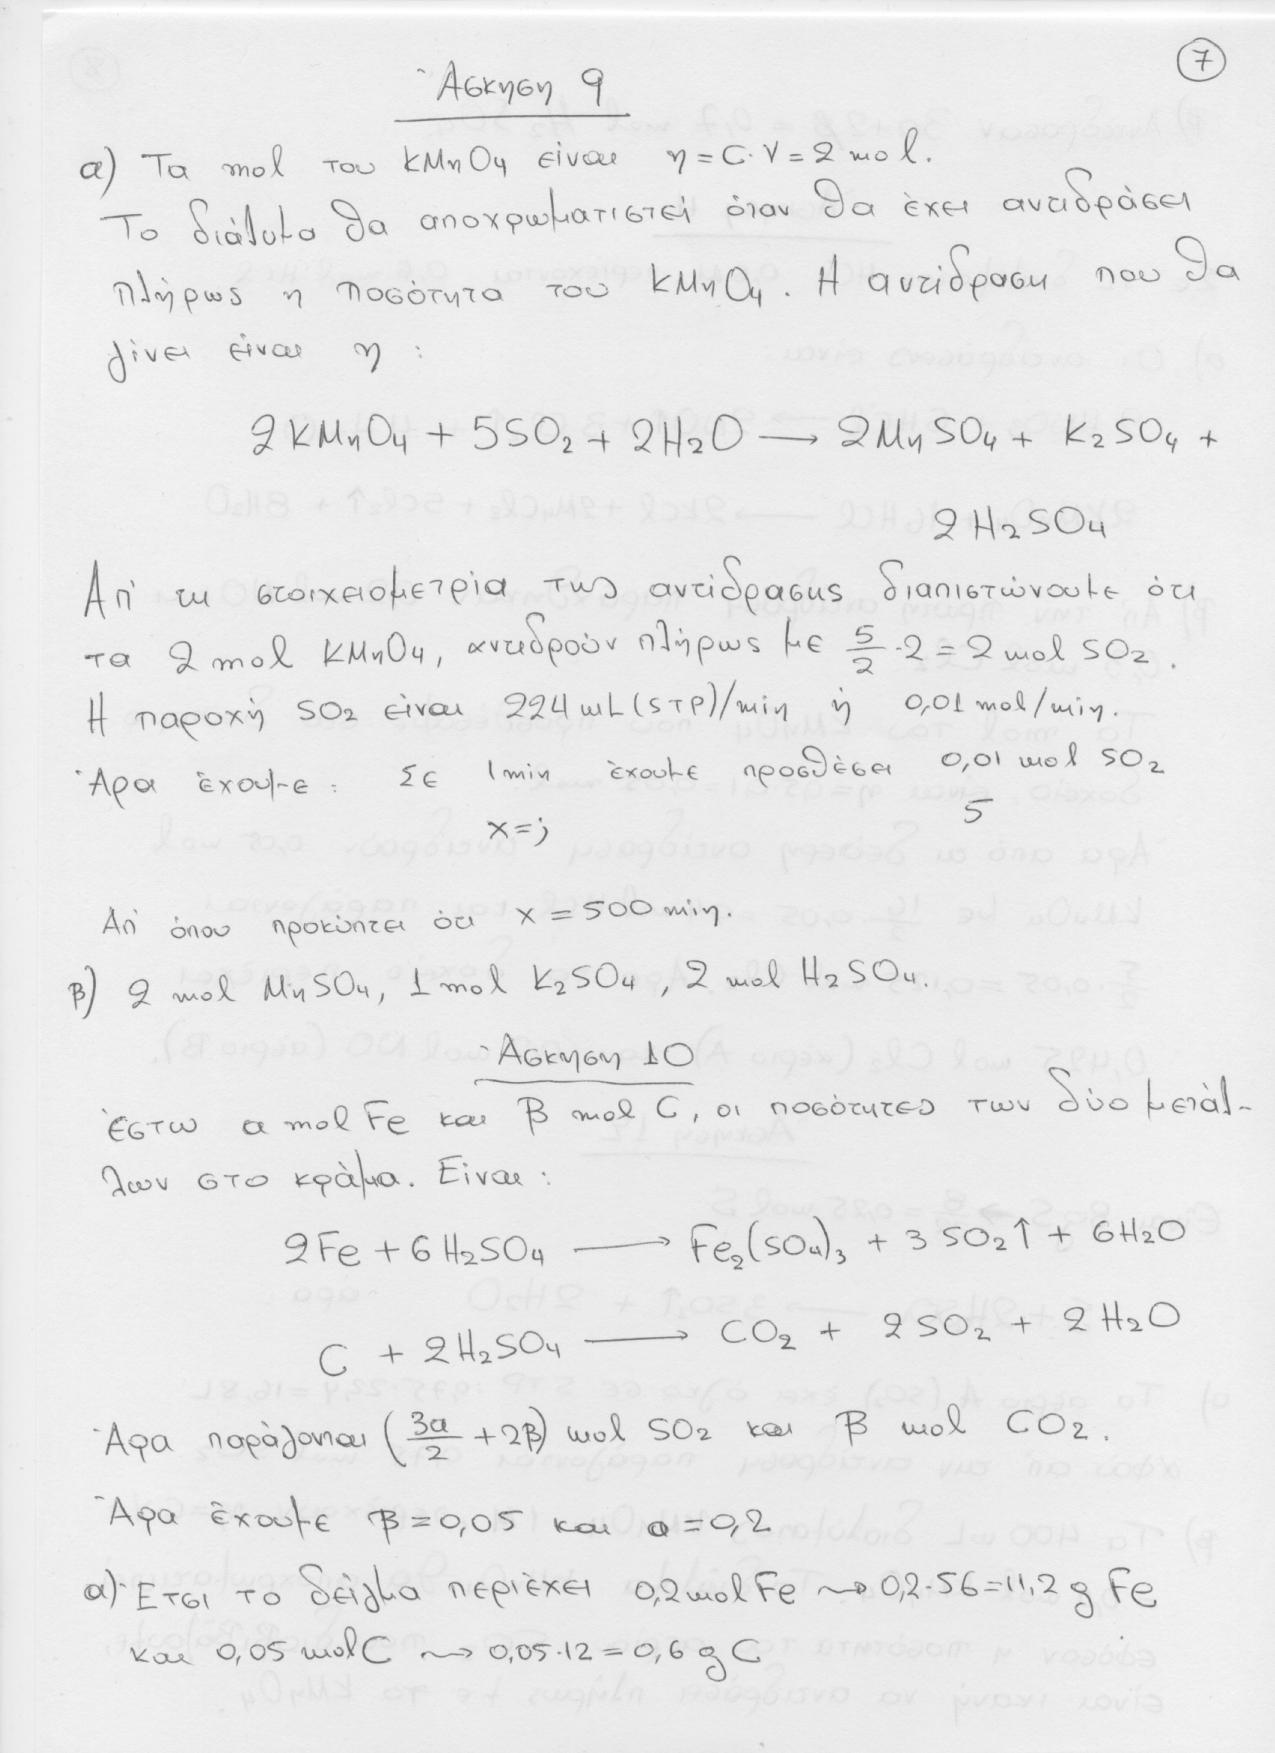 7
Άσκηση 9
α) Τα mol του KMnO4 είναι η = C·V = 2 mol.
Το διάλυμα θα αποχρωματιστεί όταν θα έχει αντιδράσει
πλήρως η ποσότητα του KMnO4. Η αντίδραση που θα
γίνει είναι η :
2KMnO4 + 5SO2 + 2H2O → 2MnSO4 + K2SO4 +
2H2SO4
Απ' τη στοιχειομετρία της αντίδρασης διαπιστώνουμε ότι
τα 2 mol KMnO4, αντιδρούν πλήρως με 5/2 · 2 = 2 mol SO2.
Η παροχή SO2 είναι 224 mL (STP)/min ή 0,01 mol/min.
Άρα έχουμε : Σε 1min έχουμε προσθέσει 0,01 mol SO2
x = ; 5
Απ' όπου προκύπτει ότι x = 500 min.
β) 2 mol MnSO4, 1 mol K2SO4, 2 mol H2SO4.
Άσκηση 10
Έστω α mol Fe και β mol C, οι ποσότητες των δύο μετάλ-
λων στο κράμα. Είναι :
2Fe + 6H2SO4 → Fe2(SO4)3 + 3SO2↑ + 6H2O
C + 2H2SO4 → CO2 + 2SO2 + 2H2O
Άρα παράγονται (3α/2 + 2β) mol SO2 και β mol CO2.
Άρα έχουμε β = 0,05 και α = 0,2
α) Έτσι το δείγμα περιέχει 0,2 mol Fe ⇝ 0,2·56 = 11,2 g Fe
και 0,05 mol C ⇝ 0,05·12 = 0,6 g C